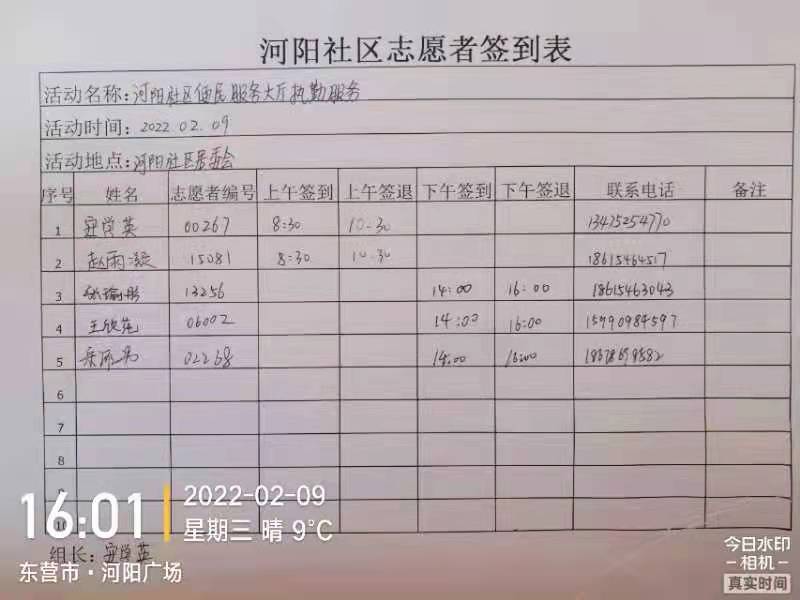 河阳社区志愿者签到表
活动名称:河阳社区便民服务大厅执勤服务
活动时间:2022.02.09
活动地点:河阳社区居委会
序号 姓名 志愿者编号 上午签到 上午签退 下午签到 下午签退 联系电话 备注
1 学英 00267 8:30 10:30 13475254770
2 赵雨凝 15081 8:30 10:30 18615464517
3 13256 14:00 16:00 18615463043
4 王 06002 14:00 16:00 15990984597
5 02268 14:00 16:00
6
7
8
9
10
组长: 学英
16:01
2022-02-09
星期三 晴 9℃
东营市·河阳广场
今日水印
-相机-
真实时间